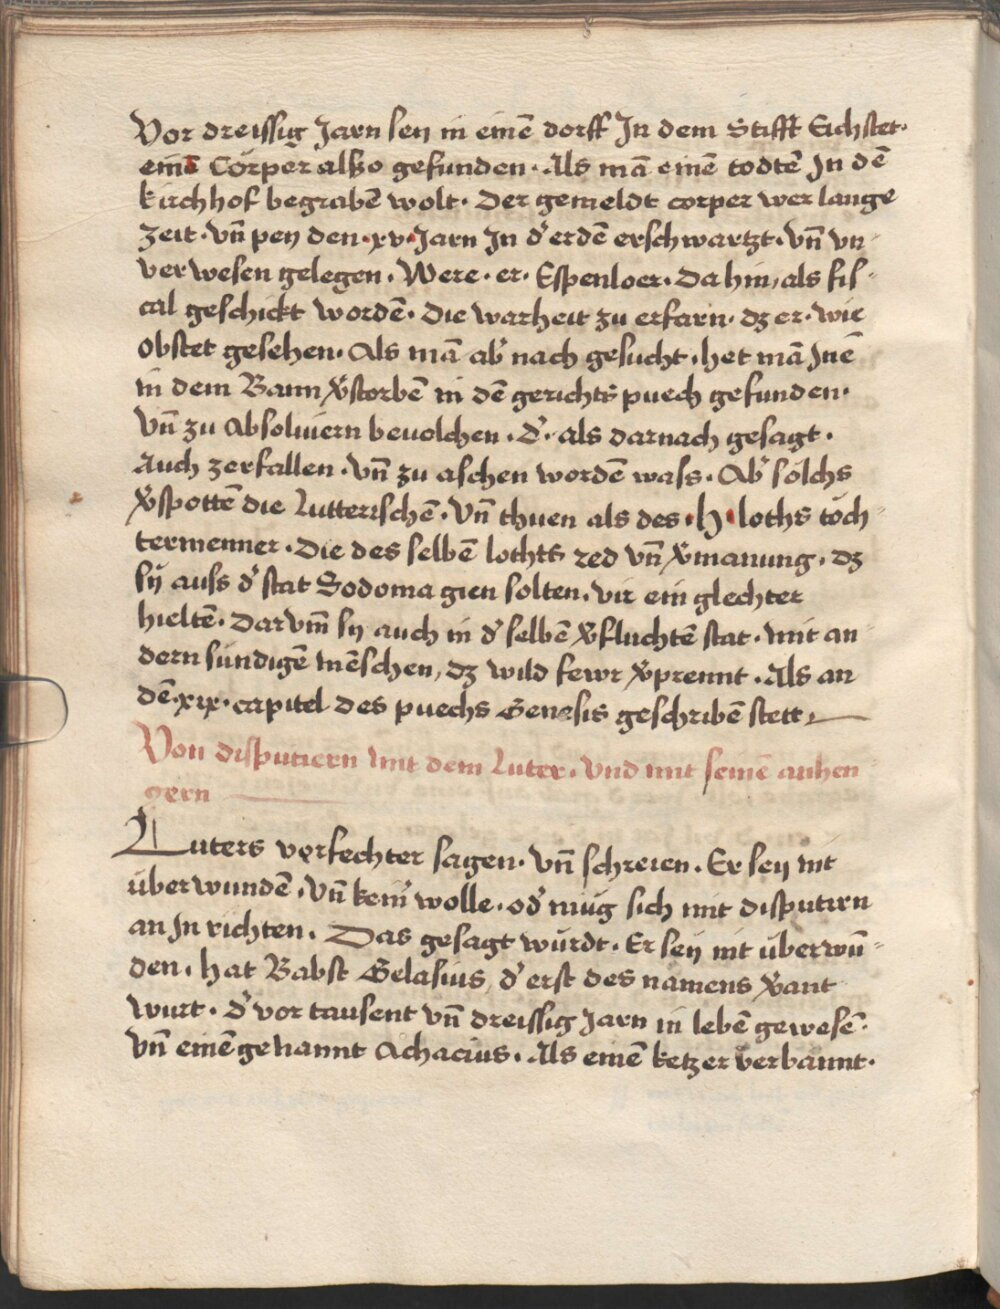 Vor dreissig Jarn sey in einē dorff Jn dem Stifft Eichstet·
einē Cörper alßo gefunden · Als mā einē todtē Jn dē
kirchhof begrabē wolt · Der gemeldt corper wer lange
zeit · vn̄ pey den · xv · Jarn Jn d' erdē erschwartzt · vn̄ vn-
verwesen gelegen · Were · er · Espenloer · Dahin, als fis-
cal geschickt wordē · die warheit zu erfarn · dz er · wie
obstet gesehen · Als mā ab' nach gesucht · het mā Jnē
in dem Bann v'storbē in dē gerichts puech gefunden ·
vn̄ zu Absoluiern beuolchen · d' · als darnach gesagt ·
Auch zerfallen · vn̄ zu aschen wordē wass · Ab' sölchs
v'spottē die Lutterischē · vn̄ thuen als des · H · loths töch-
termenner · Die des selbē lochts red vn̄ v'manung · dz
sÿ auss d' stat Sodoma gien solten · vir ein glechter
hieltē · Darvm̄ sy auch in d' selbē v'fluchtē stat · mit an-
dern sündigē mēschen, dz wild fewr v'prennt · Als an
dē · xix · capitel des puechs Genesis geschribē stett
Von disputiern mit dem Luter · vnd mit seinē anhen
gern
Luters verfechter sagen · vn̄ schreien · Er sey nit
überwundē · vn̄ kein' wolle · od' müg sich mit disputirn
an Jn richten · Das gesagt würdt · Er sey nit überwū-
den · hat Babst Gelasius, d' erst des namens v'ant
wurt · d' vor tausent vn̄ dreissig Jarn in lebē gewesē ·
vn̄ einē genannt Achacius · Als einē ketzer verbannt ·